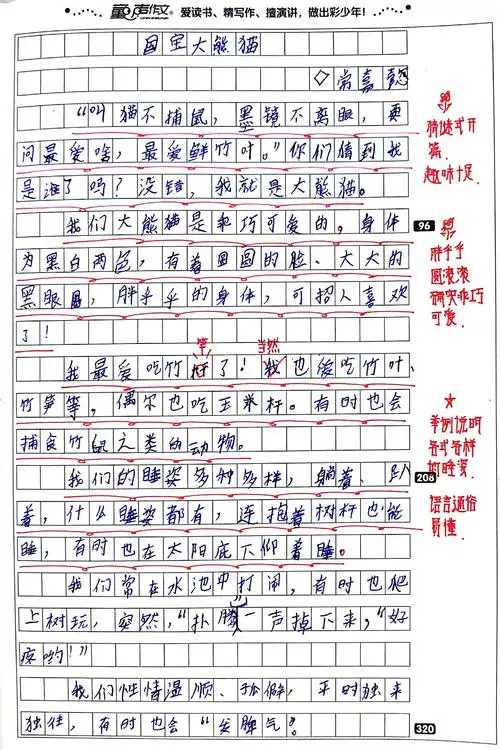 童声作文 爱读书、精写作、擅演讲,做出彩少年!
国宝大熊猫
◇常嘉懿
“叫猫不捕鼠,墨镜不离眼,要
问最爱啥,最爱鲜竹叶。”你们猜到我
是谁了吗?没错,我就是大熊猫。
我们大熊猫是乖巧可爱的。身体
为黑白两色,有着圆圆的脸、大大的
黑眼圈,胖乎乎的身体,可招人喜欢
了!
我最爱吃竹子了!当然我也爱吃竹叶、
竹笋等,偶尔也吃玉米杆。有时也会
捕食竹鼠之类的动物。
我们的睡姿多种多样,躺着、趴
着,什么睡姿都有,连抱着树杆也能
睡,有时也在太阳底下仰着睡。
我们常在水池中打闹,有时也爬
上树玩,突然,“扑腾”一声掉下来,“好
疼哟!”
我们性情温顺、孤僻,平时独来
独往,有时也会“发脾气”。
猜谜式开
篇
趣味十足
96
胖乎乎
圆滚滚
确实乖巧
可爱
举例说明
各式各样
的睡姿
208
语言通俗
易懂
320